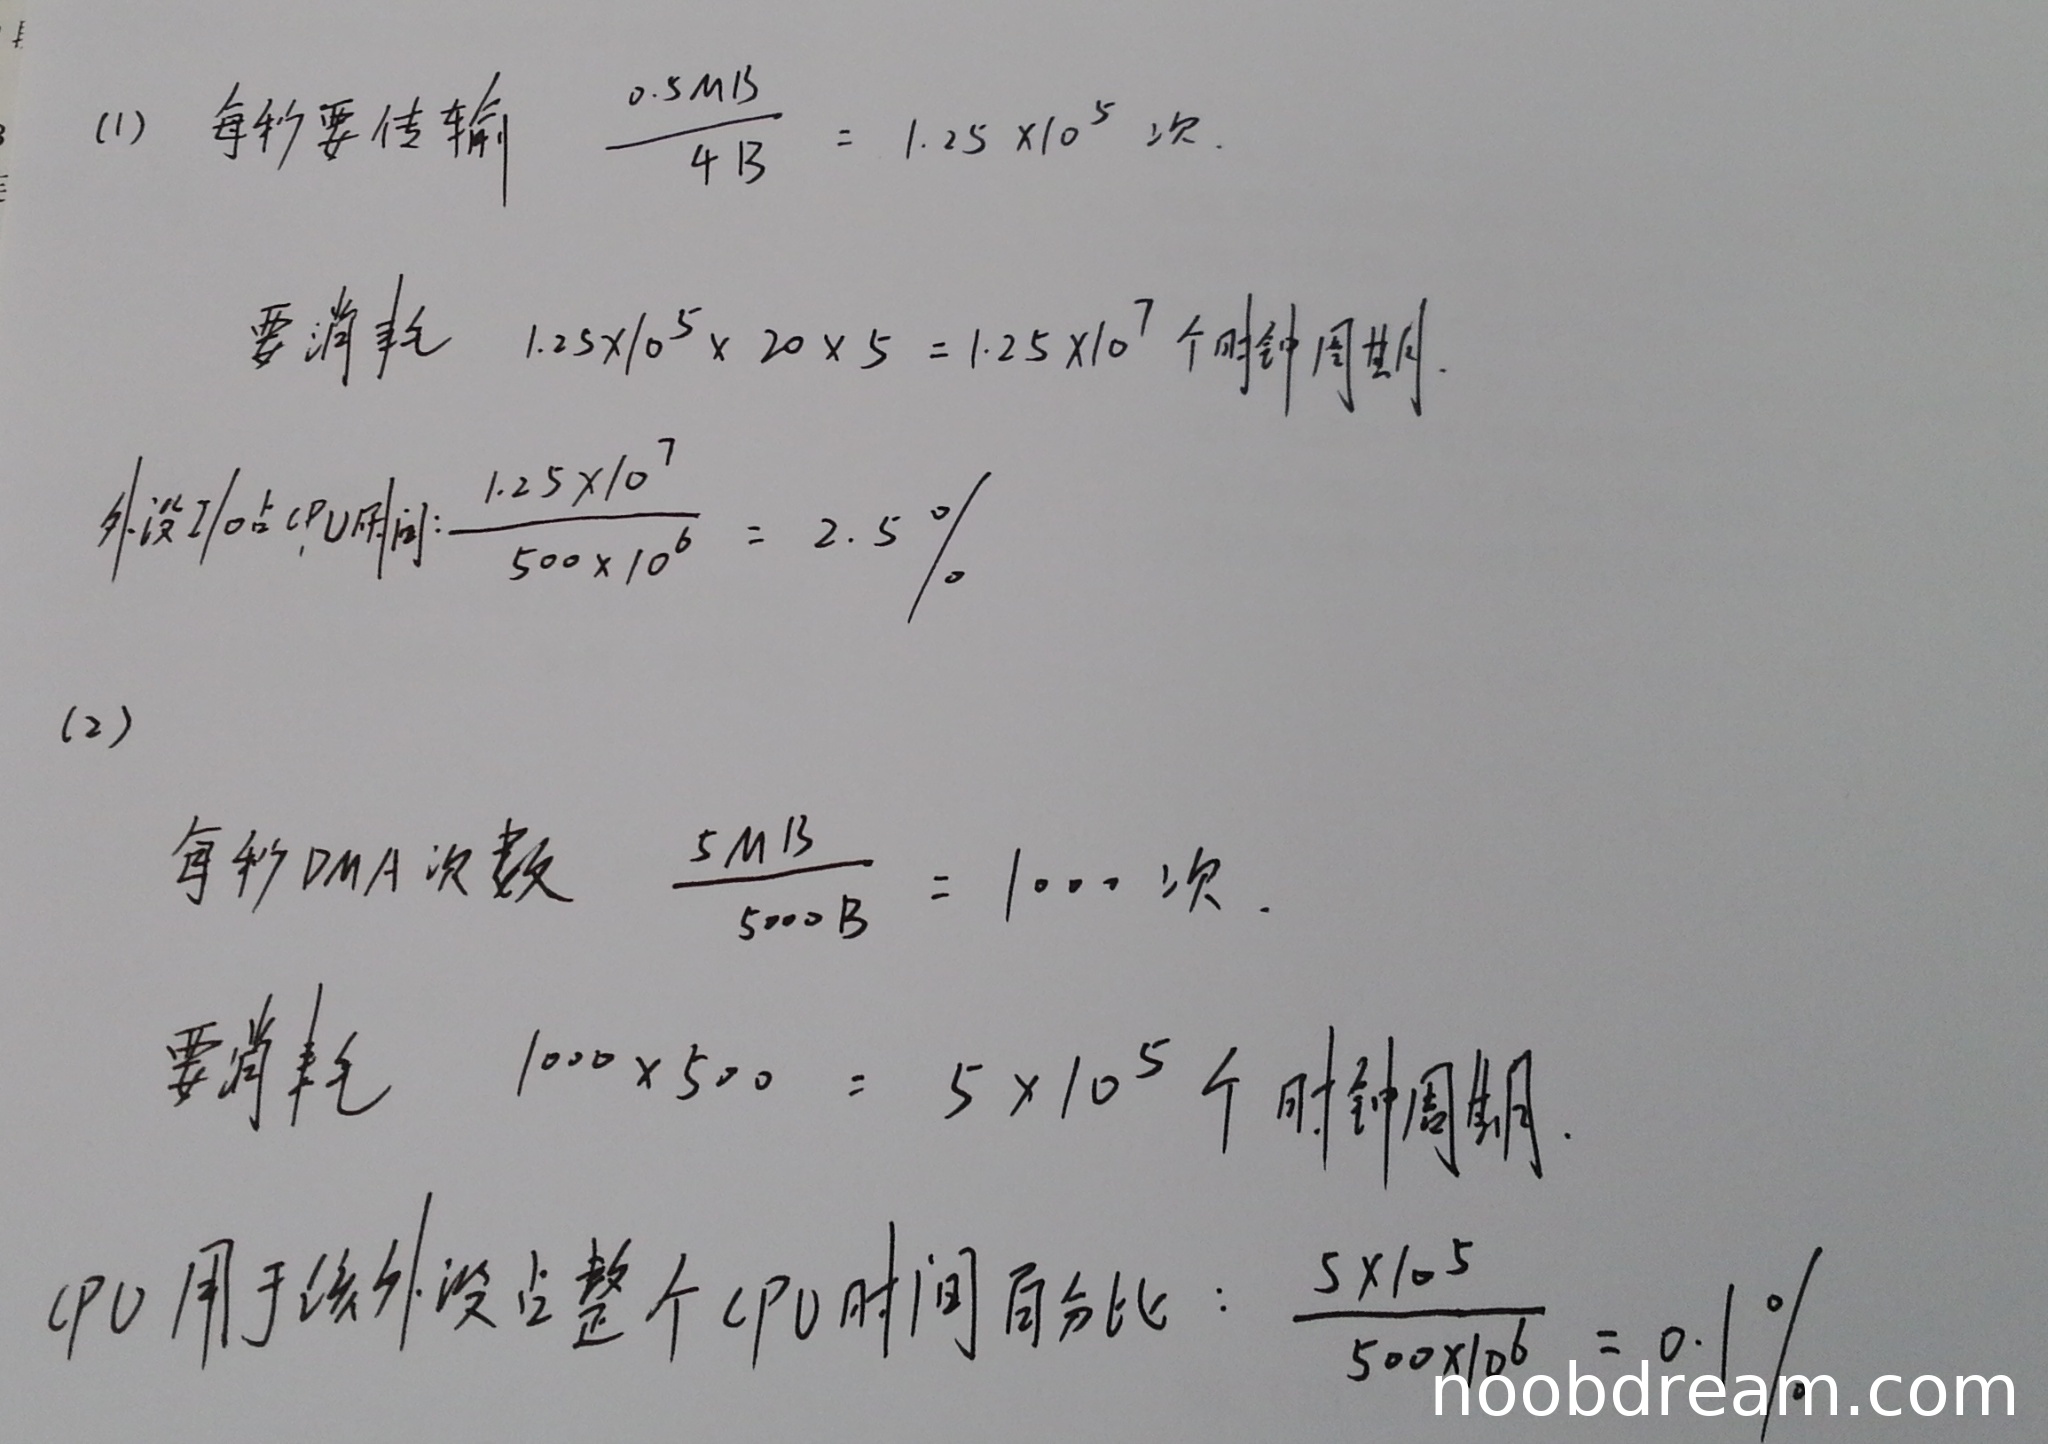 (1) 每秒要传输 0.5MB/4B = 1.25×10^5 次.
要消耗 1.25×10^5×20×5=1.25×10^7个时钟周期.
外设I/O占CPU时间: 1.25×10^7/500×10^6 = 2.5%
(2)
每秒DMA次数 5MB/5000B = 1000次.
要消耗 1000×500 = 5×10^5个时钟周期.
CPU用于该外设占整个CPU时间百分比: 5×10^5/500×10^6 = 0.1%
noobdream.com